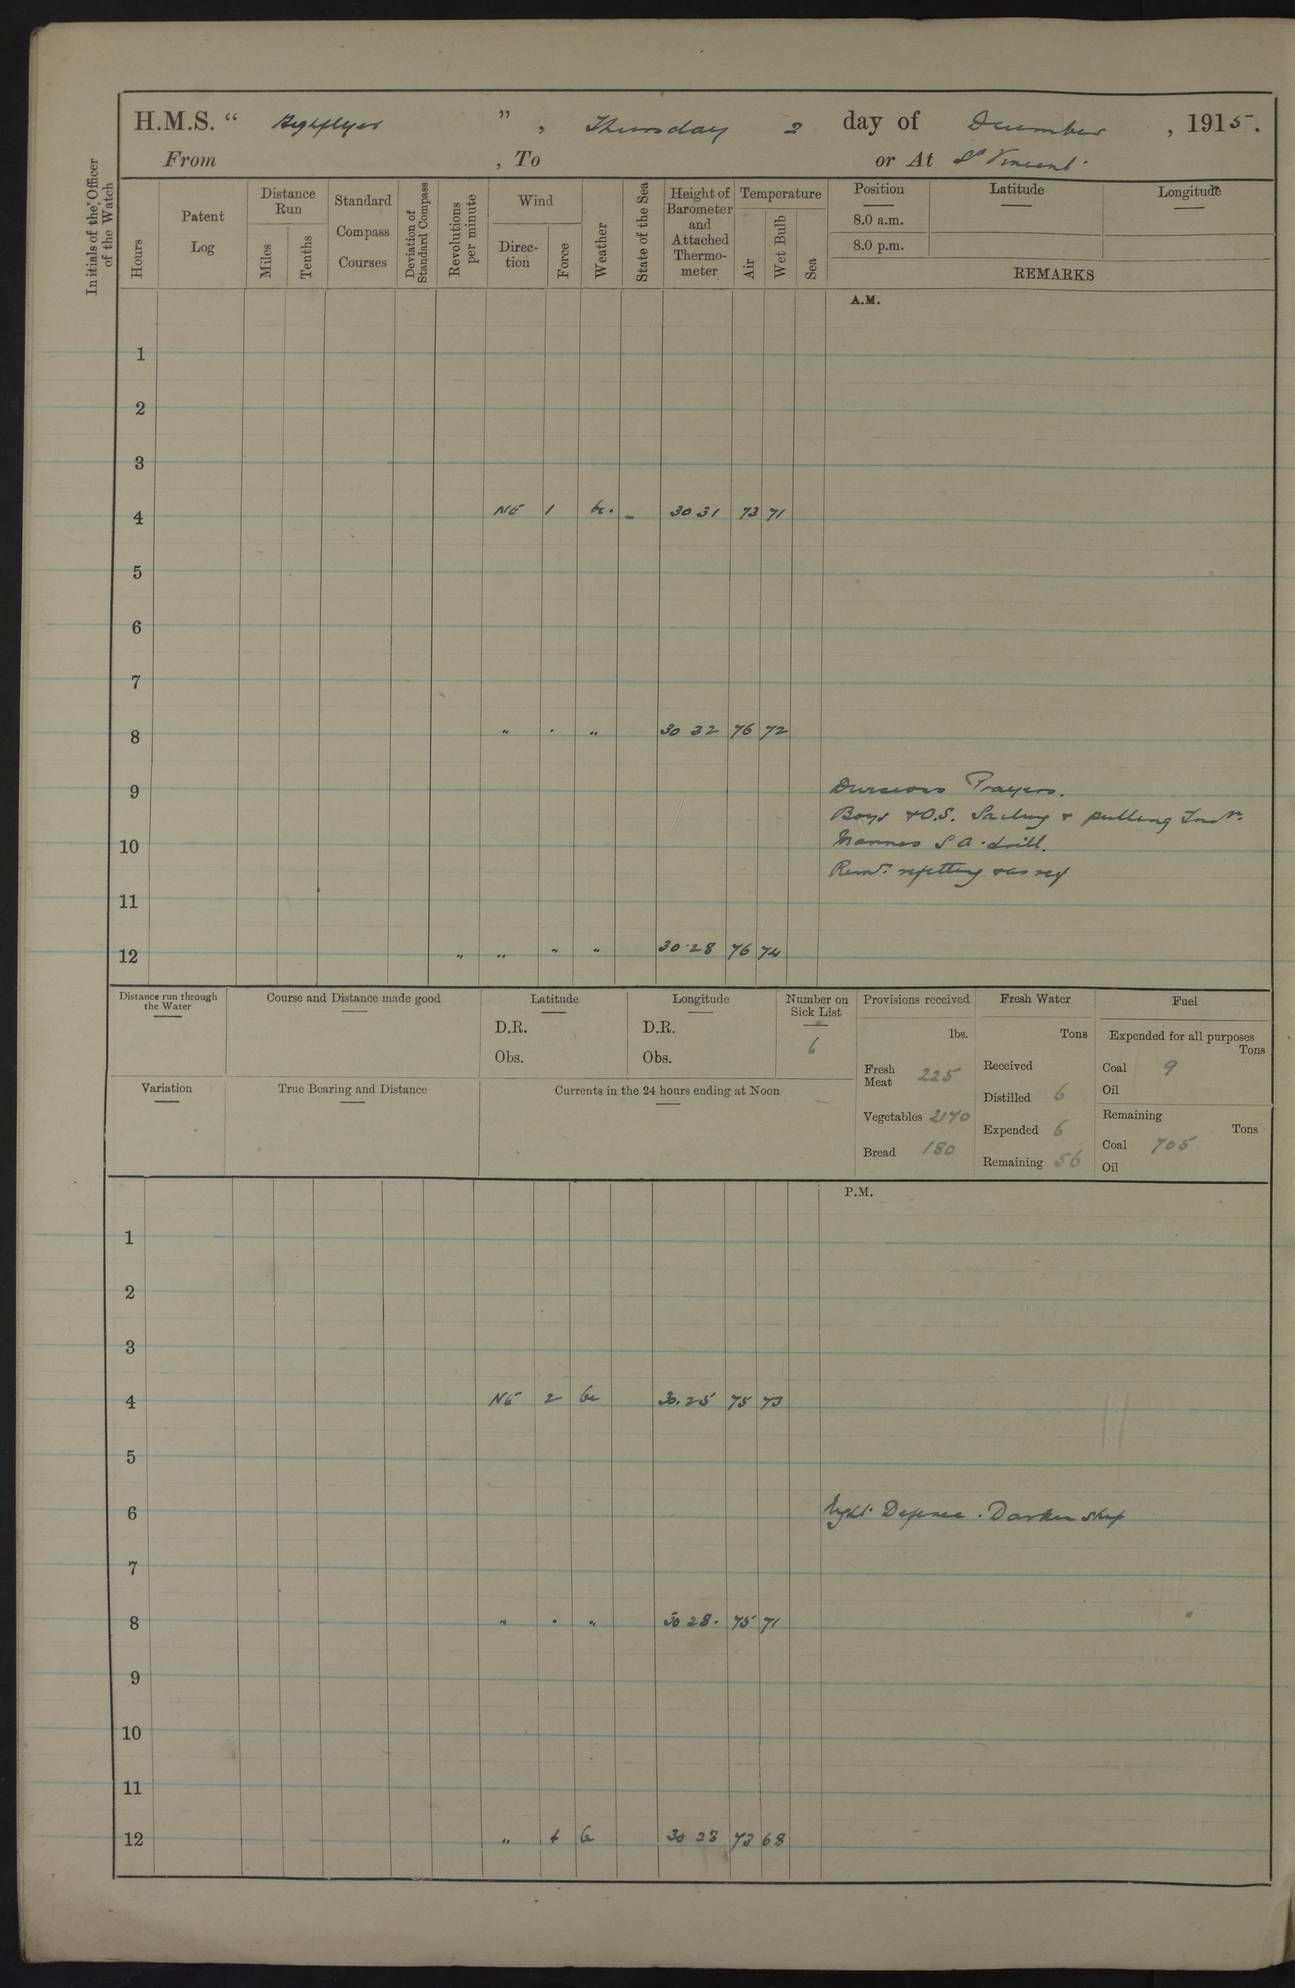 H.M.S. “ Highflyer ” , Thursday 2 day of December , 1915.
From , To or At St Vincent
Initials of the Officer of the Watch
Hours
Patent Log
Distance Run
Miles
Tenths
Standard Compass Courses
Deviation of Standard Compass
Revolutions per minute
Wind
Direction
Force
Weather
State of the Sea
Height of Barometer and Attached Thermometer
Temperature
Air
Wet Bulb
Sea
Position Latitude Longitude
8.0 a.m.
8.0 p.m.
REMARKS
A.M.
1
2
3
4 NE 1 bc. - 30 31 73 71
5
6
7
8 " . " 30 32 76 72
9 Divisions Prayers.
Boys & O.S. Sailing & pulling Instn.
10 Marines S A drill.
Remdr refitting & as req
11
12 " " " " 30.28 76 74
Distance run through the Water
Course and Distance made good
Latitude
D.R.
Obs.
Longitude
D.R.
Obs.
Number on Sick List
6
Provisions received
lbs.
Fresh Meat 225
Vegetables 2170
Bread 180
Fresh Water
Tons
Received
Distilled 6
Expended 6
Remaining 56
Fuel
Expended for all purposes
Tons
Coal 9
Oil
Remaining
Tons
Coal 705
Oil
Variation
True Bearing and Distance
Currents in the 24 hours ending at Noon
P.M.
1
2
3
4 NE 2 bc 30.25 75 73
5
6 Night Defence. Darken ship
7
8 " . " 30 28. 75 71
9
10
11
12 " 30 23 73 68